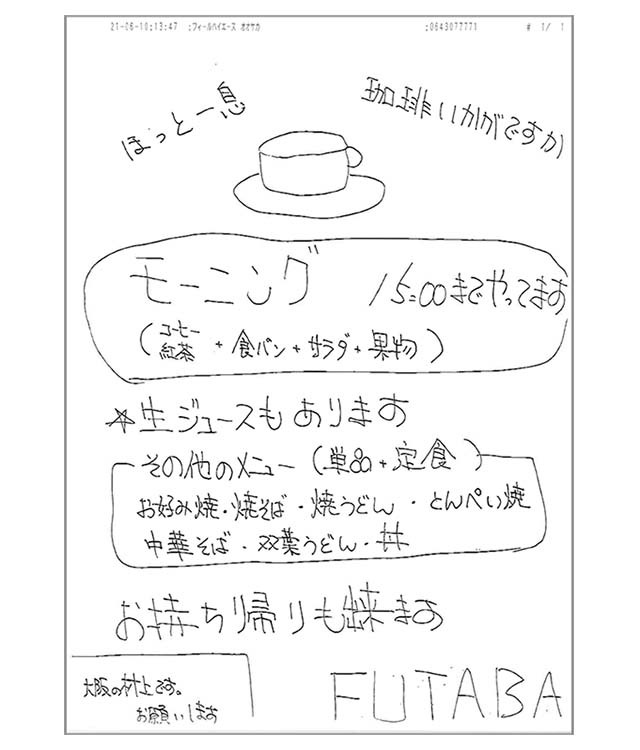 21-06-10;13:47 ;フィールハイエース オオサカ ;0643077771 # 1/ 1
ほっと一息
珈琲いかがですか
モーニング 15:00までやってます
(コーヒー 紅茶 + 食パン + サラダ + 果物)
☆生ジュースもあります
その他のメニュー (単品 + 定食)
お好み焼・焼そば・焼うどん・とんぺい焼
中華そば・双葉うどん・丼
お持ち帰りも出来ます
大阪の村上です。
お願いします
FUTABA